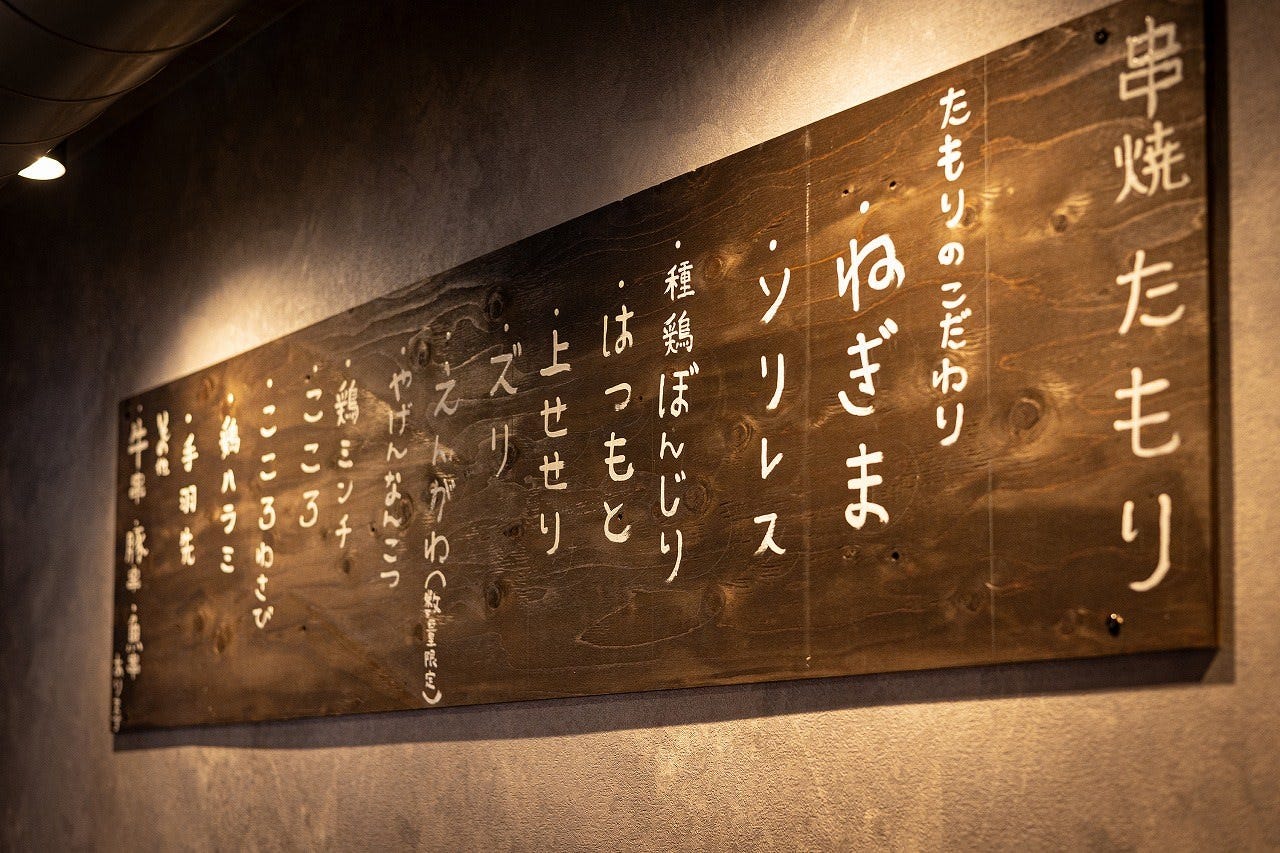 串焼 たもり
たもりのこだわり
・ねぎま
・ソリレス
・種鶏ぼんじり
・はつもと
・上せせり
・ズリ
・えんがわ(数量限定)
・やげんなんこつ
・鶏ミンチ
・こころ
・こころわさび
・鶏ハラミ
・手羽先
その他
・牛串・豚串・魚串
あります